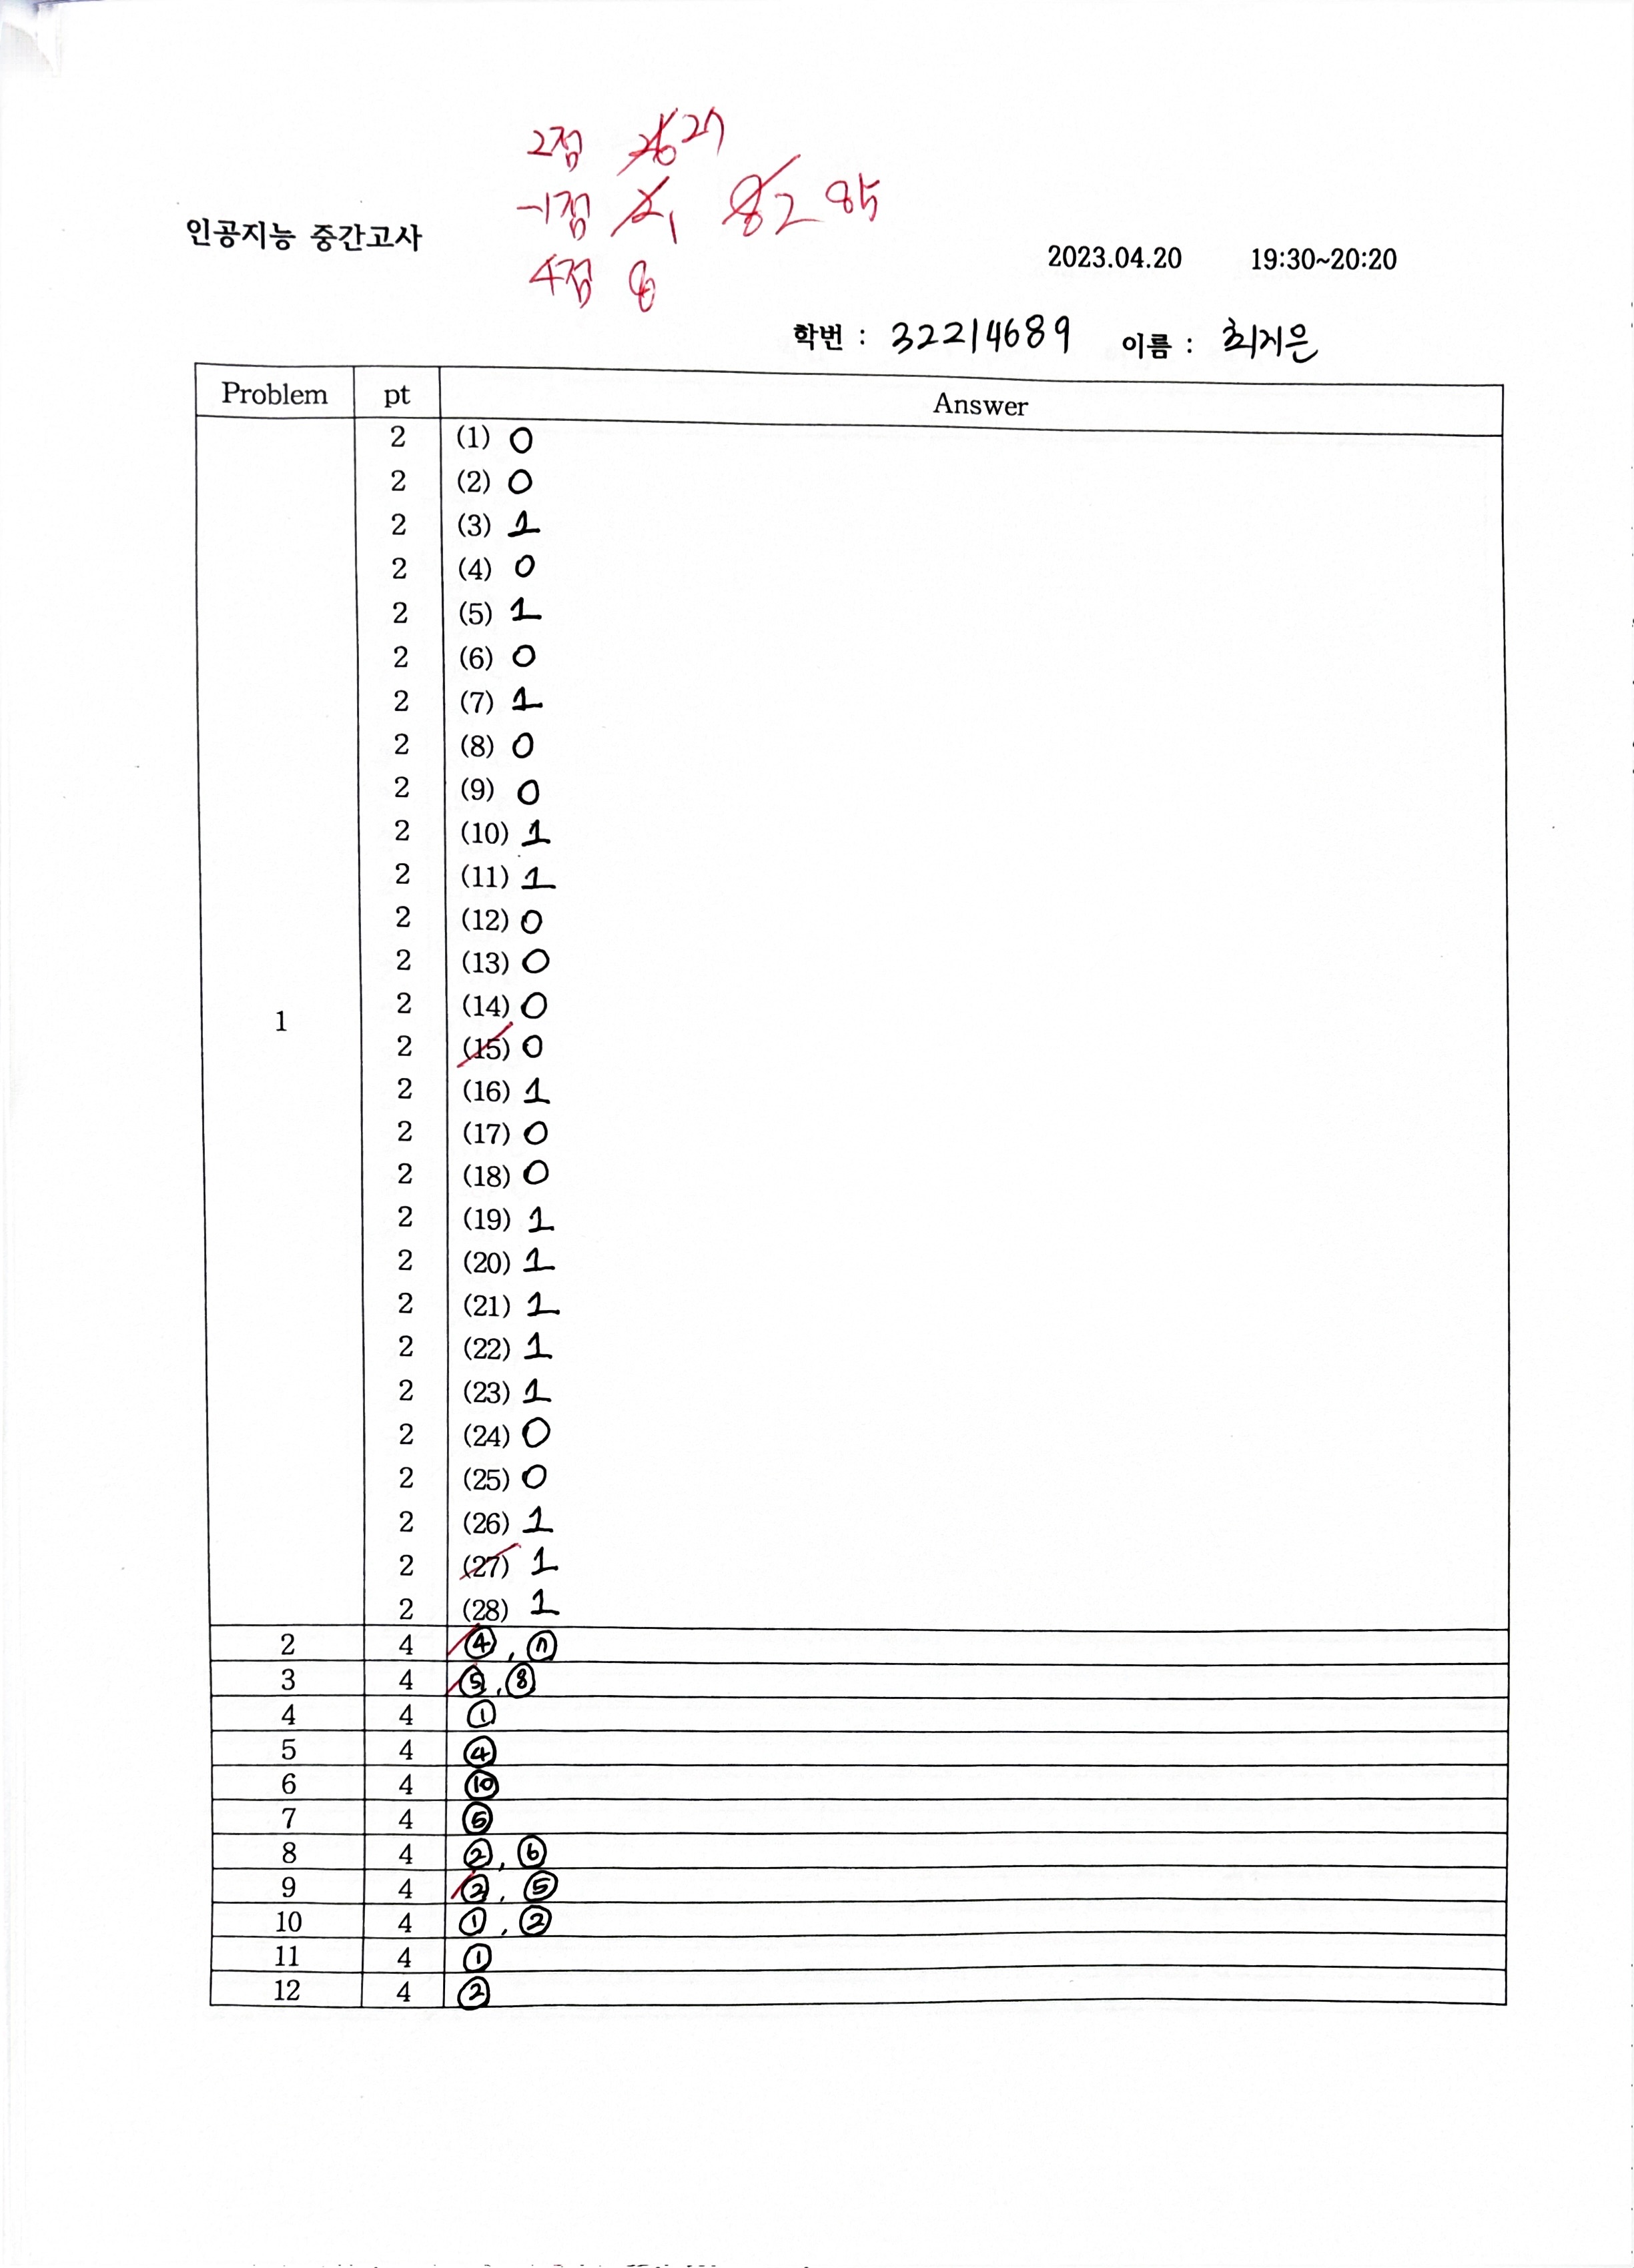 2점 26 27
-1점 2 1 82 85
인공지능 중간고사
4점 8
2023.04.20 19:30~20:20
학번 : 32214689 이름 : 최지은
Problem pt Answer
2 (1) 0
2 (2) 0
2 (3) 1
2 (4) 0
2 (5) 1
2 (6) 0
2 (7) 1
2 (8) 0
2 (9) 0
2 (10) 1
2 (11) 1
2 (12) 0
2 (13) 0
2 (14) 0
1
2 (15) 0
2 (16) 1
2 (17) 0
2 (18) 0
2 (19) 1
2 (20) 1
2 (21) 1
2 (22) 1
2 (23) 1
2 (24) 0
2 (25) 0
2 (26) 1
2 (27) 1
2 (28) 1
2 4 ④, ⑦
3 4 ⑤, ⑧
4 4 ①
5 4 ④
6 4 ⑩
7 4 ⑤
8 4 ②, ⑥
9 4 ②, ⑤
10 4 ①, ②
11 4 ①
12 4 ②